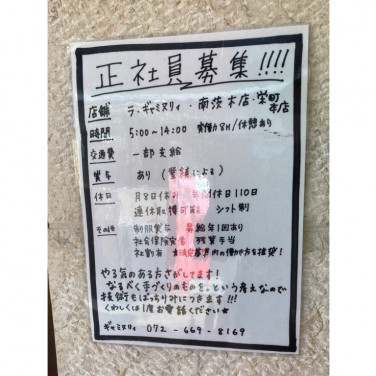 正社員募集!!!!
店舗 ラ・ギャミヌリィ・南茨木店・栄町本店
時間 5:00~14:00 実働8H/休憩あり
交通費 一部支給
賞与 あり(業績による)
休日 月8日休み 年間休日110日
連休取得可能 シフト制
その他 制服貸与 昇給年1回あり
社会保険完備 残業手当
社割有
やる気のある方さがしてます!
なるべく手づくりのものを。という考えなので
技術もばっちりみにつきます!!!
くわしくは1度お電話ください☆
ギャミヌリィ 072-669-8169